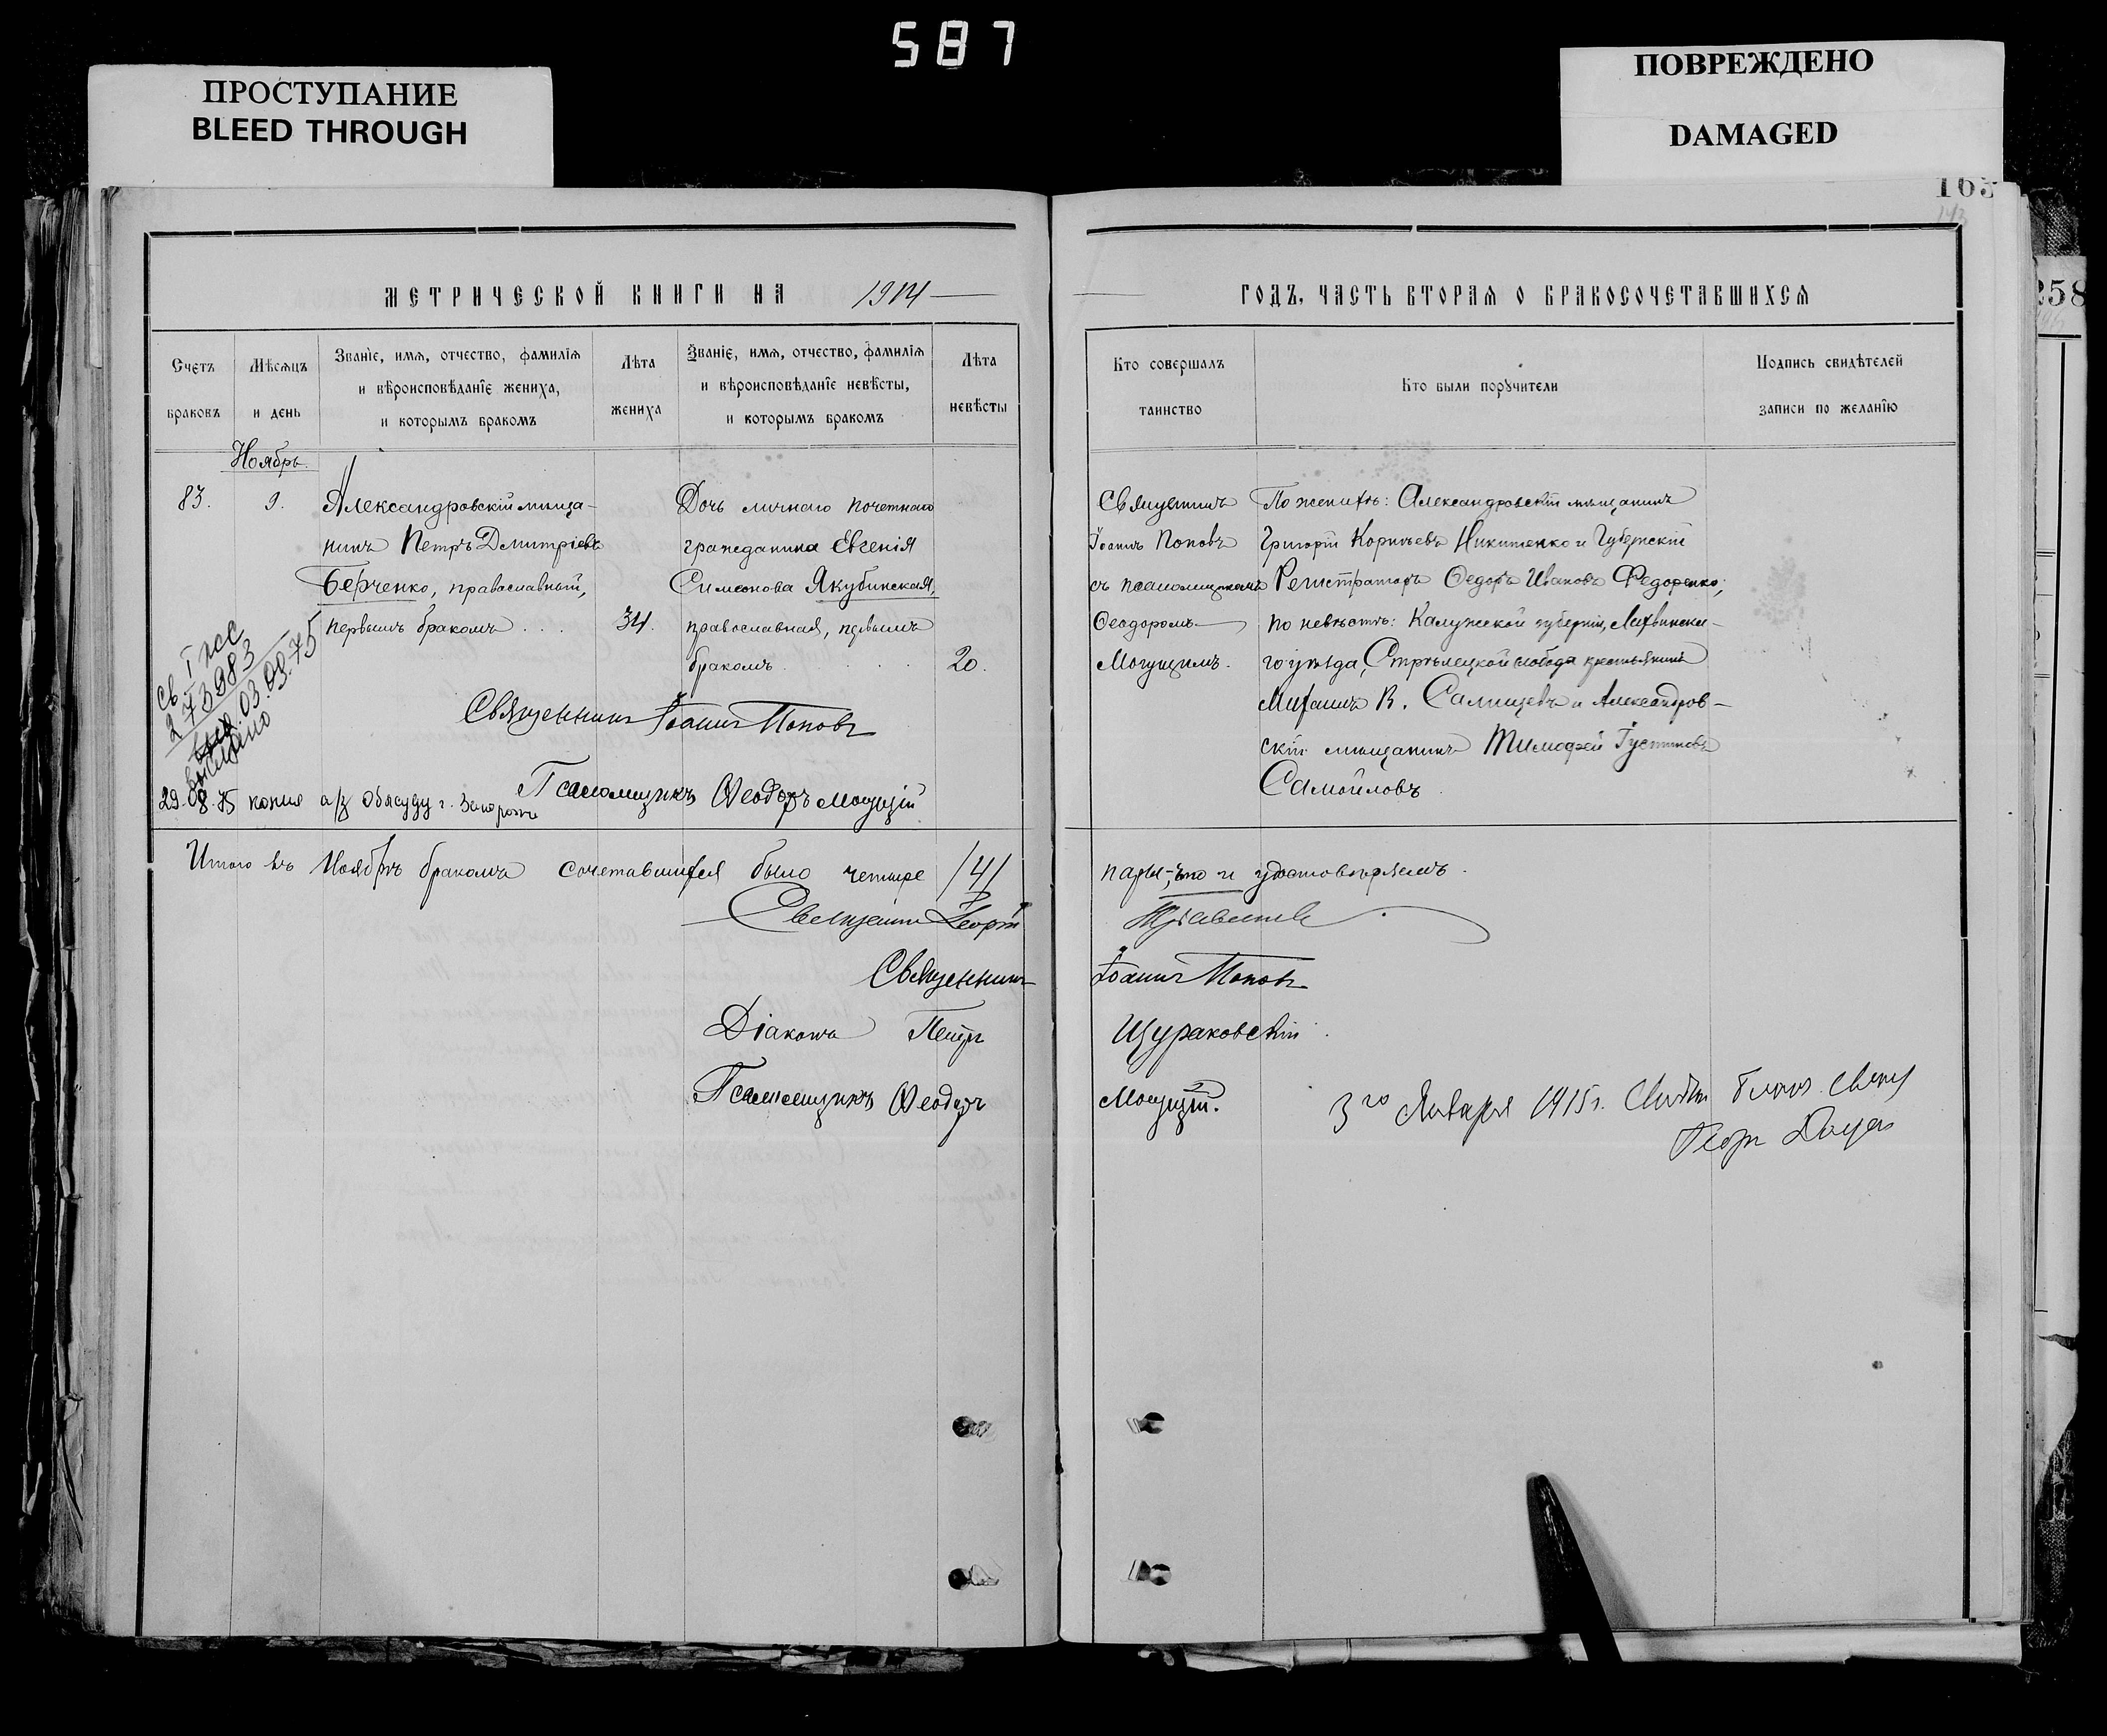 587
ПРОСТУПАНИЕ
BLEED THROUGH
ПОВРЕЖДЕНО
DAMAGED
163
143
258
МЕТРИЧЕСКОЙ КНИГИ НА 1914
Счетъ браковъ
Мѣсяцъ и день
Званіе, имя, отчество, фамилія
и вѣроисповѣданіе жениха,
и которымъ бракомъ
Лѣта жениха
Званіе, имя, отчество, фамилія
и вѣроисповѣданіе невѣсты,
и которымъ бракомъ
Лѣта невѣсты
Ноябрь.
83.
9.
Александровскій мѣща-
нинъ Петръ Дмитріевъ
Берченко, православный,
первымъ бракомъ . . .
34.
Дочь личнаго почетнаго
гражданина Евгенія
Симеонова Якубинская,
православная, первымъ
бракомъ . . . .
20.
Священникъ Іоаннъ Поповъ
Псаломщикъ Ѳеодоръ Могущій
св. I
273983
03.09.75
выслано
29.08.75 копия а/з Облсуду г. Запорожье
Итого въ Ноябрѣ бракомъ сочетавшихся было четыре /4/
Священникъ Георгій
Священникъ
Діаконъ Петръ
Псаломщикъ Ѳеодоръ
ГОДЪ, ЧАСТЬ ВТОРАЯ О БРАКОСОЧЕТАВШИХСЯ
Кто совершалъ
таинство
Кто были поручители
Подпись свидѣтелей
записи по желанію
Священникъ
Іоаннъ Поповъ
съ псаломщикомъ
Ѳеодоромъ
Могущимъ.
По женихѣ: Александровскій мѣщанинъ
Григорій Корнѣевъ Никитенко и Губернскій
Регистраторъ Ѳедоръ Ивановъ Федоренко;
по невѣстѣ: Калужской губерніи, Лихвинска-
го уѣзда, Стрѣлецкой слободы крестьянинъ
Михаилъ В. Салищевъ и Александров-
скій мѣщанинъ Тимофей Іустиновъ
Самойловъ
пары, что и удостовѣряемъ.
Іоаннъ Поповъ
Щураковскій
Могущій.
3го Января 1915 г.